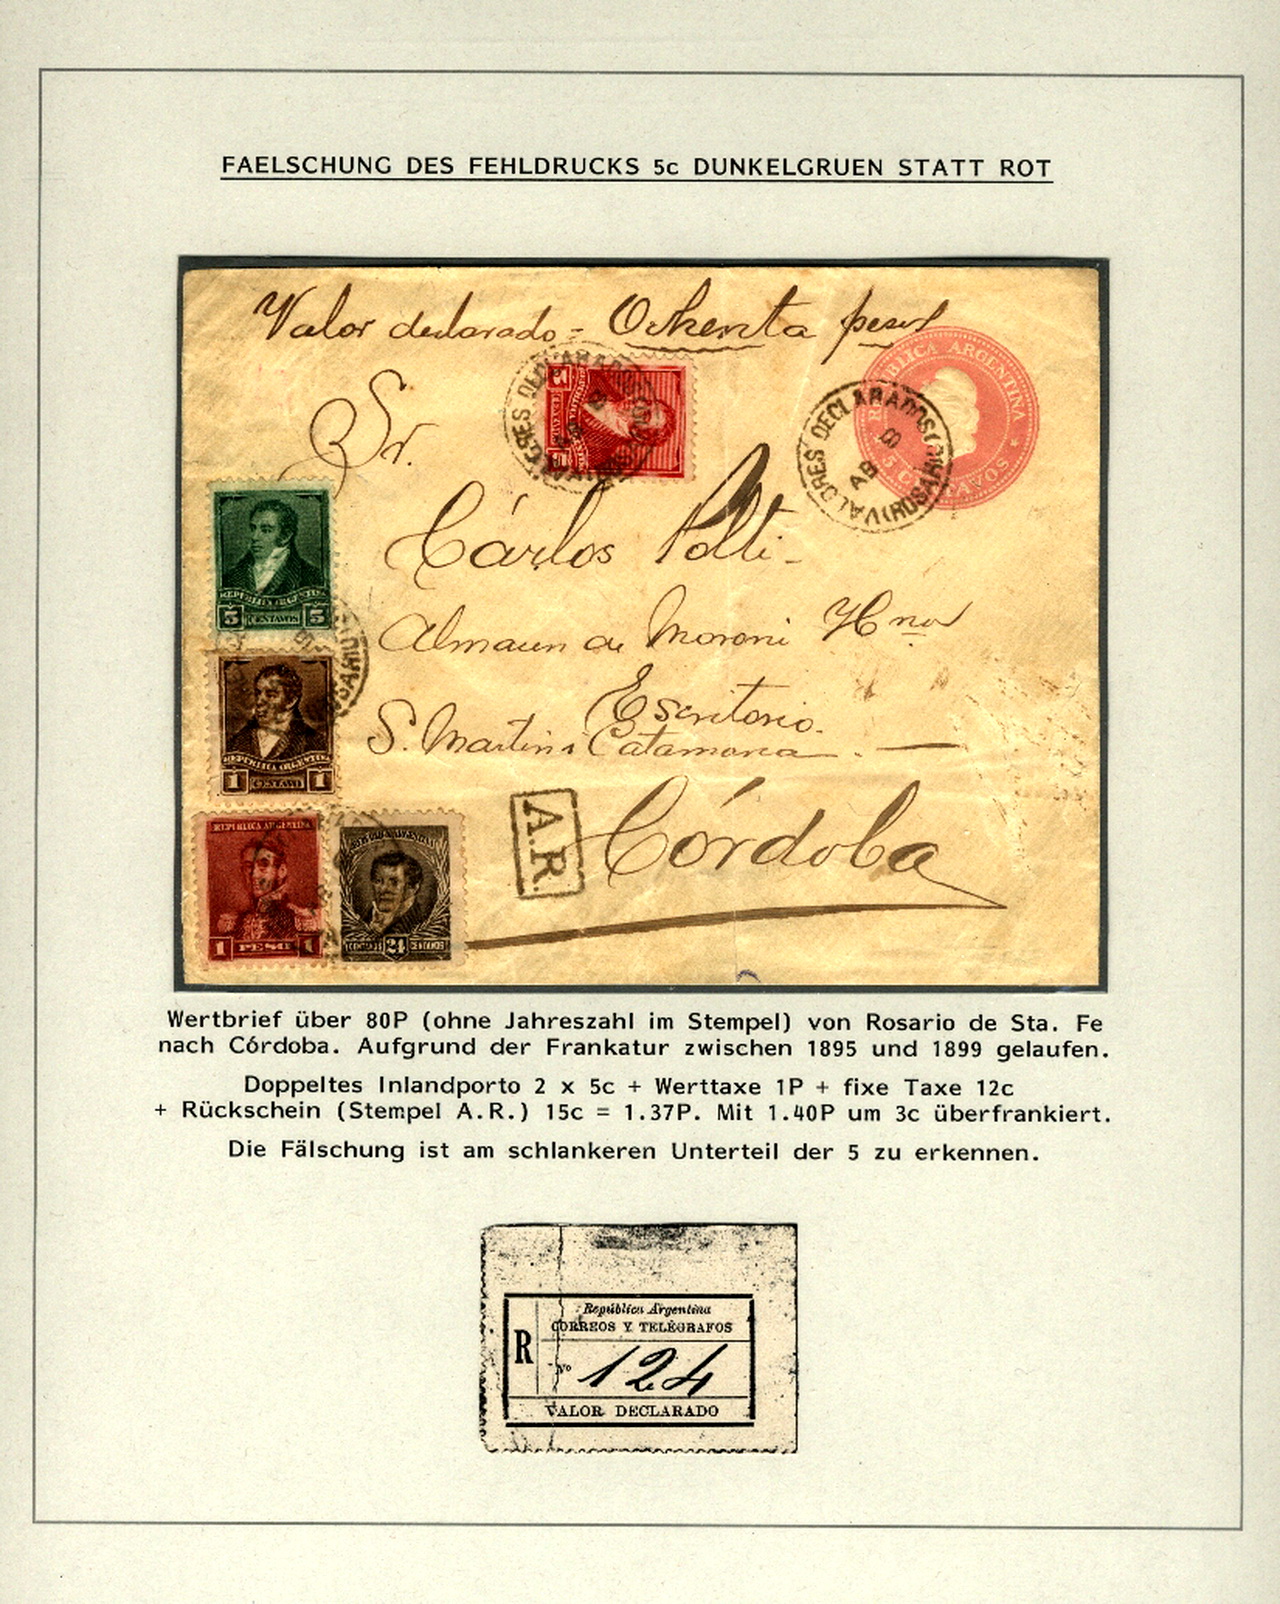 FAELSCHUNG DES FEHLDRUCKS 5c DUNKELGRUEN STATT ROT
Valor declarado = Ochenta pesos
REPUBLICA ARGENTINA
5 CENTAVOS
VALORES DECLARADOS
AB 8
(ROSARIO)
VALORES DECLARADOS
Sr.
Cárlos Polti-
REPUBLICA ARGENTINA
5 CENTAVOS 5
Hnos
Escritorio.
S. Martin Catamarca. —
REPUBLICA ARGENTINA
1 CENTAVO 1
A.R.
Córdoba
REPUBLICA ARGENTINA
1 PESO 1
CENTAVOS 24 CENTAVOS
Wertbrief über 80P (ohne Jahreszahl im Stempel) von Rosario de Sta. Fe
nach Córdoba. Aufgrund der Frankatur zwischen 1895 und 1899 gelaufen.
Doppeltes Inlandporto 2 x 5c + Werttaxe 1P + fixe Taxe 12c
+ Rückschein (Stempel A.R.) 15c = 1.37P. Mit 1.40P um 3c überfrankiert.
Die Fälschung ist am schlankeren Unterteil der 5 zu erkennen.
República Argentina
CORREOS Y TELÉGRAFOS
R
Nº 124
VALOR DECLARADO